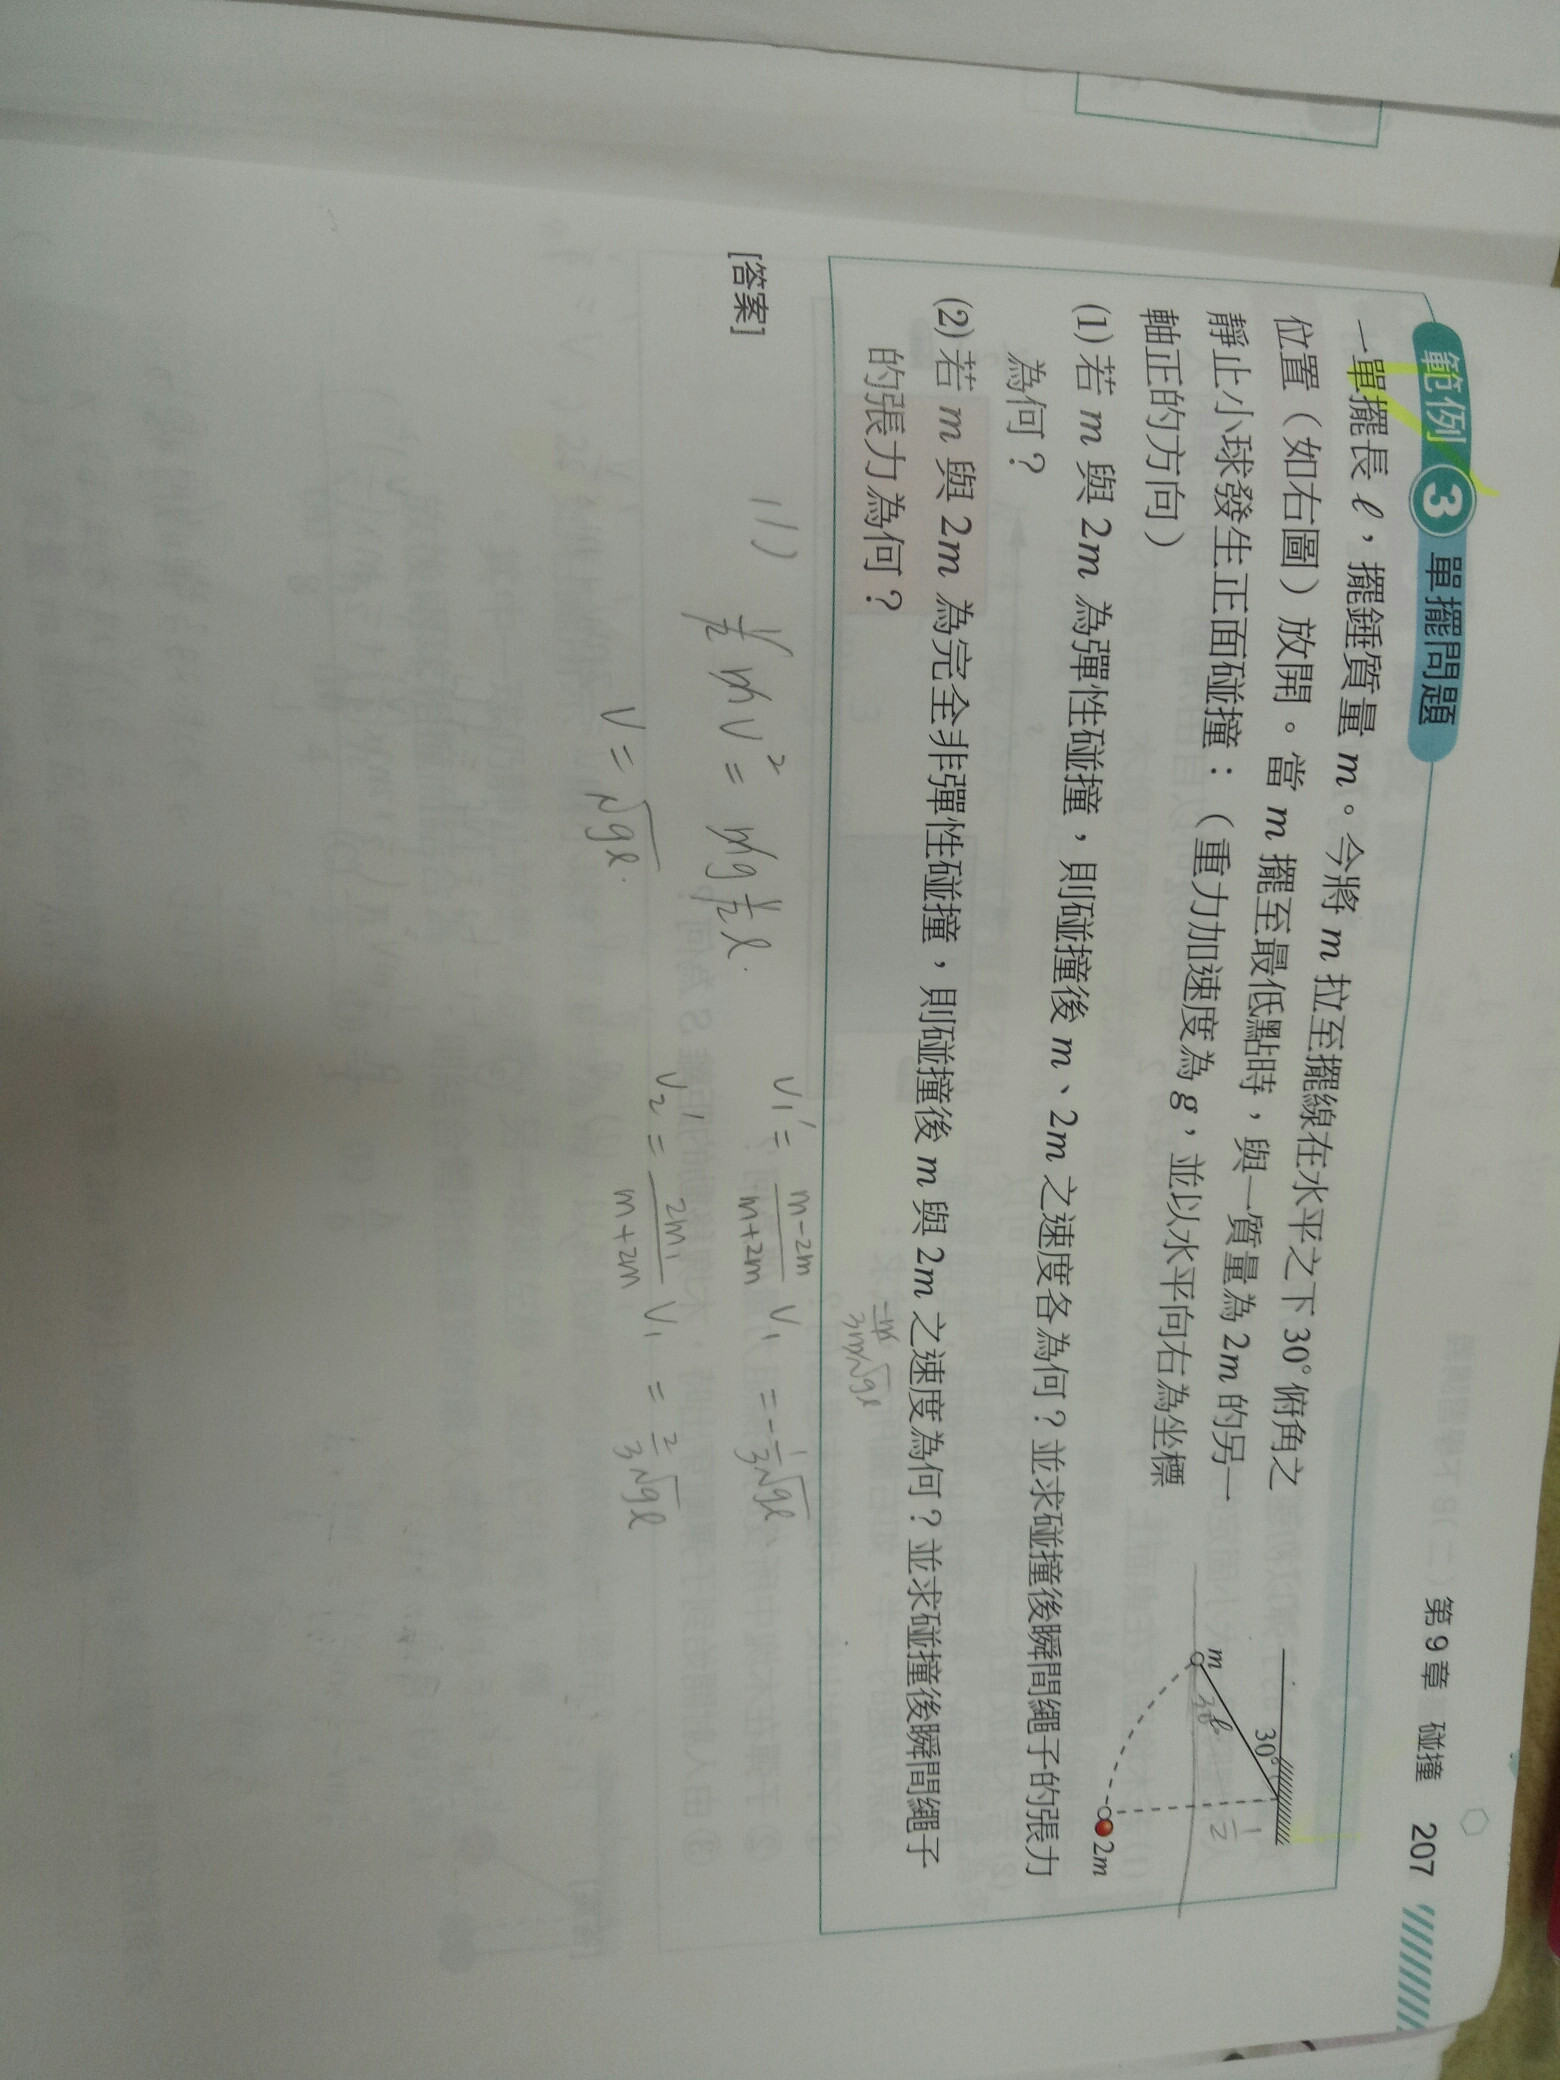 第9章 碰撞 207
範例 3 單擺問題
一單擺長ℓ，擺錘質量m。今將m拉至擺線在水平之下30°俯角之
位置（如右圖）放開。當m擺至最低點時，與一質量為2m的另一
靜止小球發生正面碰撞：（重力加速度為g，並以水平向右為坐標
軸正的方向）
30°
m
ℓ
30
1/2
2m
(1) 若m與2m為彈性碰撞，則碰撞後m、2m之速度各為何？並求碰撞後瞬間繩子的張力
為何？
(2) 若m與2m為完全非彈性碰撞，則碰撞後m與2m之速度為何？並求碰撞後瞬間繩子
的張力為何？
[答案]
(1)
1/2 mv² = mg 1/2 ℓ.
v = √gℓ.
-m/3m √gℓ
v₁' = (m-2m)/(m+2m) v₁ = -1/3 √gℓ
v₂' = 2m₁/(m+2m) v₁ = 2/3 √gℓ